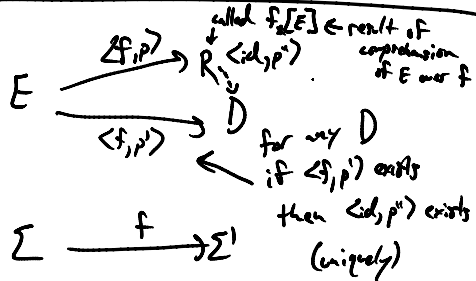 called f_*[E] ← result of
comprehension
of E over f
<f,p>
R
<id,p">
E
D
<f,p'>
for any D
if <f,p'> exists
then <id,p"> exists
(uniquely)
Σ
f
Σ'